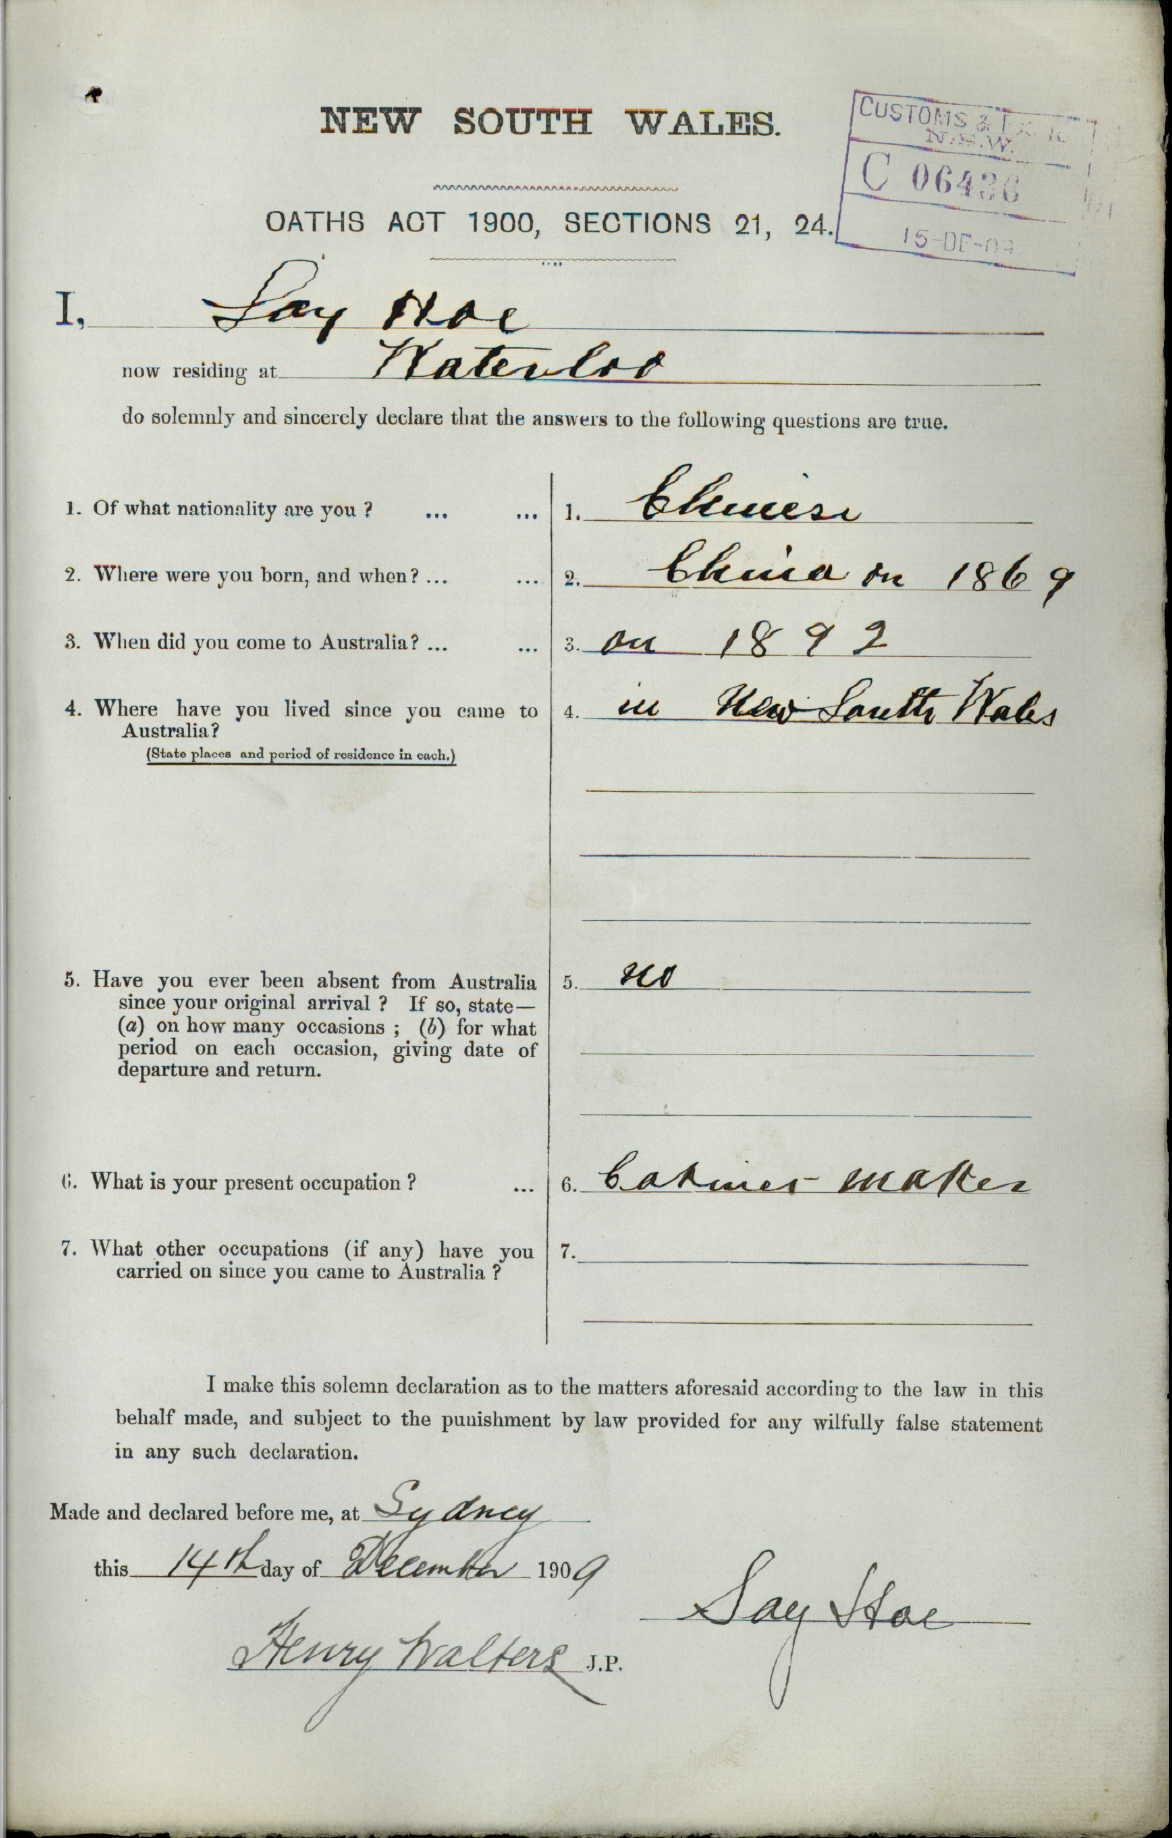 NEW SOUTH WALES.
CUSTOMS &
N.S.W.
C 06436
15-DE-09
OATHS ACT 1900, SECTIONS 21, 24.
I, Say Hoe
now residing at Waterloo
do solemnly and sincerely declare that the answers to the following questions are true.
1. Of what nationality are you ? ... ... 1. Chinese
2. Where were you born, and when? ... ... 2. China on 1869
3. When did you come to Australia? ... ... 3. on 1892
4. Where have you lived since you came to 4. in New South Wales
Australia?
(State places and period of residence in each.)
5. Have you ever been absent from Australia 5. no
since your original arrival ? If so, state—
(a) on how many occasions ; (b) for what
period on each occasion, giving date of
departure and return.
6. What is your present occupation ? ... 6. Cabinet maker
7. What other occupations (if any) have you 7.
carried on since you came to Australia ?
I make this solemn declaration as to the matters aforesaid according to the law in this
behalf made, and subject to the punishment by law provided for any wilfully false statement
in any such declaration.
Made and declared before me, at Sydney
this 14th day of December 1909
Say Hoe
Henry Walters J.P.